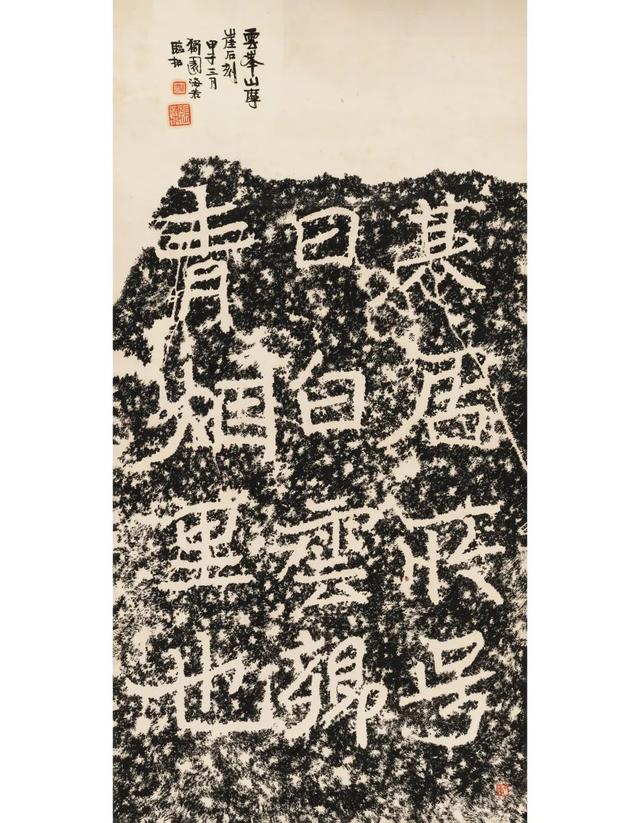 其居所号
曰白雲鄉
青烟里也
雲峯山摩
崖石刻
甲子三月
園海
臨